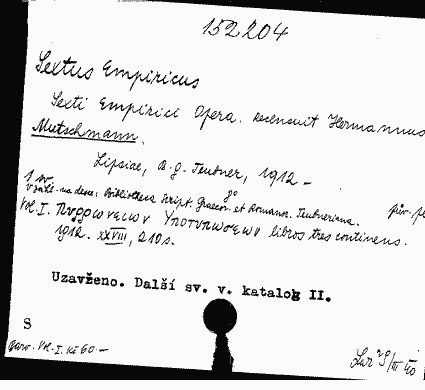 152204
Sextus Empiricus
Sexti Empirici Opera. recensuit Hermannus
Mutschmann.
Lipsiae, B. G. Teubner, 1912 –
1 sv. pův. p
V záhl. na desce: Bibliotheca Script. Graecor. et Romanor. Teubneriana.
Vol. I. Πυρρωνειων Υποτυπωσεων libros tres continens.
1912. XXVIII, 210 s.
Uzavženo. Další sv. v. katalog II.
S
Vol. I. Kč 60.–